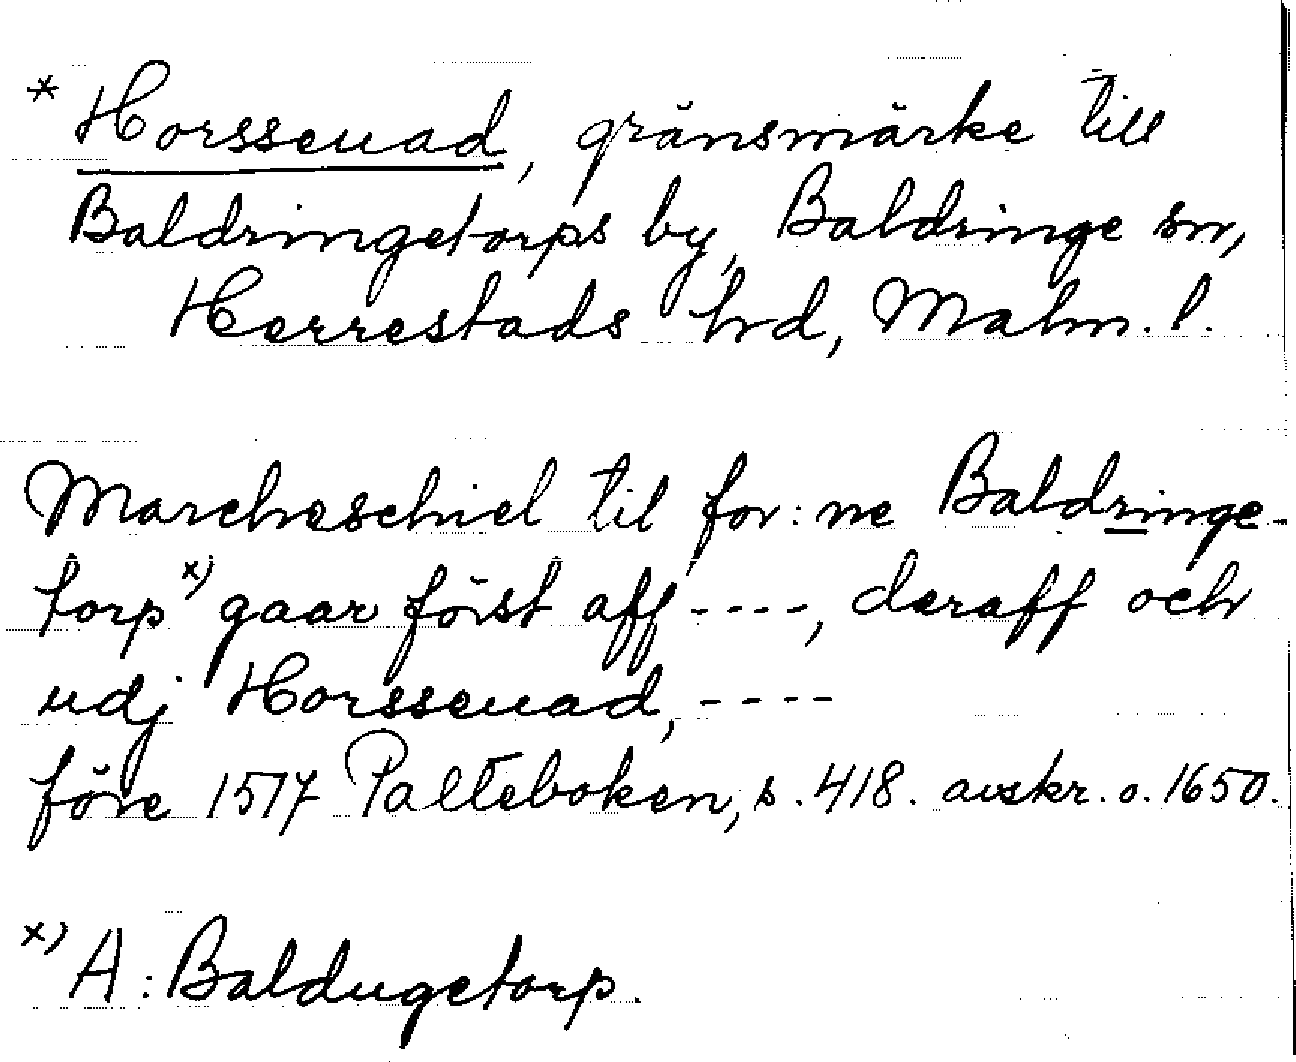 * Horsseuad, gränsmärke till
Baldringetorps by, Baldringe sn,
Herrestads hrd, Malm. l.
Marcheschiel til for: ne Baldringe-
torp x) gaar först aff ----, deraff och
udj Horsseuad, ----
före 1517 Palteboken, s. 418. avskr. o. 1650.
x) A: Baldugetorp.